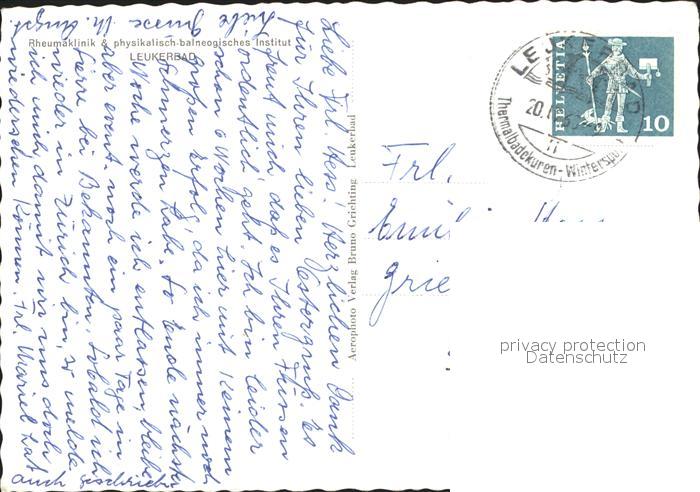 Rheumaklinik & physikalisch-balneogisches Institut
LEUKERBAD
Liebe Frl. Hess! Herzlichen Dank
für Ihren lieben Ostergruß. Es
freut mich daß es Ihren Füssen
ordentlich geht. Ich bin leider
schon 6 Wochen hier mit keinem
großen Erfolg, da ich immer noch
Schmerzen habe. So Ende nächster
Woche werde ich entlassen, bleibe
aber event. noch ein paar Tage in
bei Bekannten. Sobald ich
wieder in Zürich bin, so melde
ich mich damit wir uns doch
wiedersehen können. Frl. Mariet hat
auch geschrieben
Liebe Grüsse
Aerophoto Verlag Bruno Grichting Leukerbad
HELVETIA
10
LEUKERBAD
20.
11
Thermalbadekuren - Winterspo
Frl.
Emili
Grie
privacy protection
Datenschutz